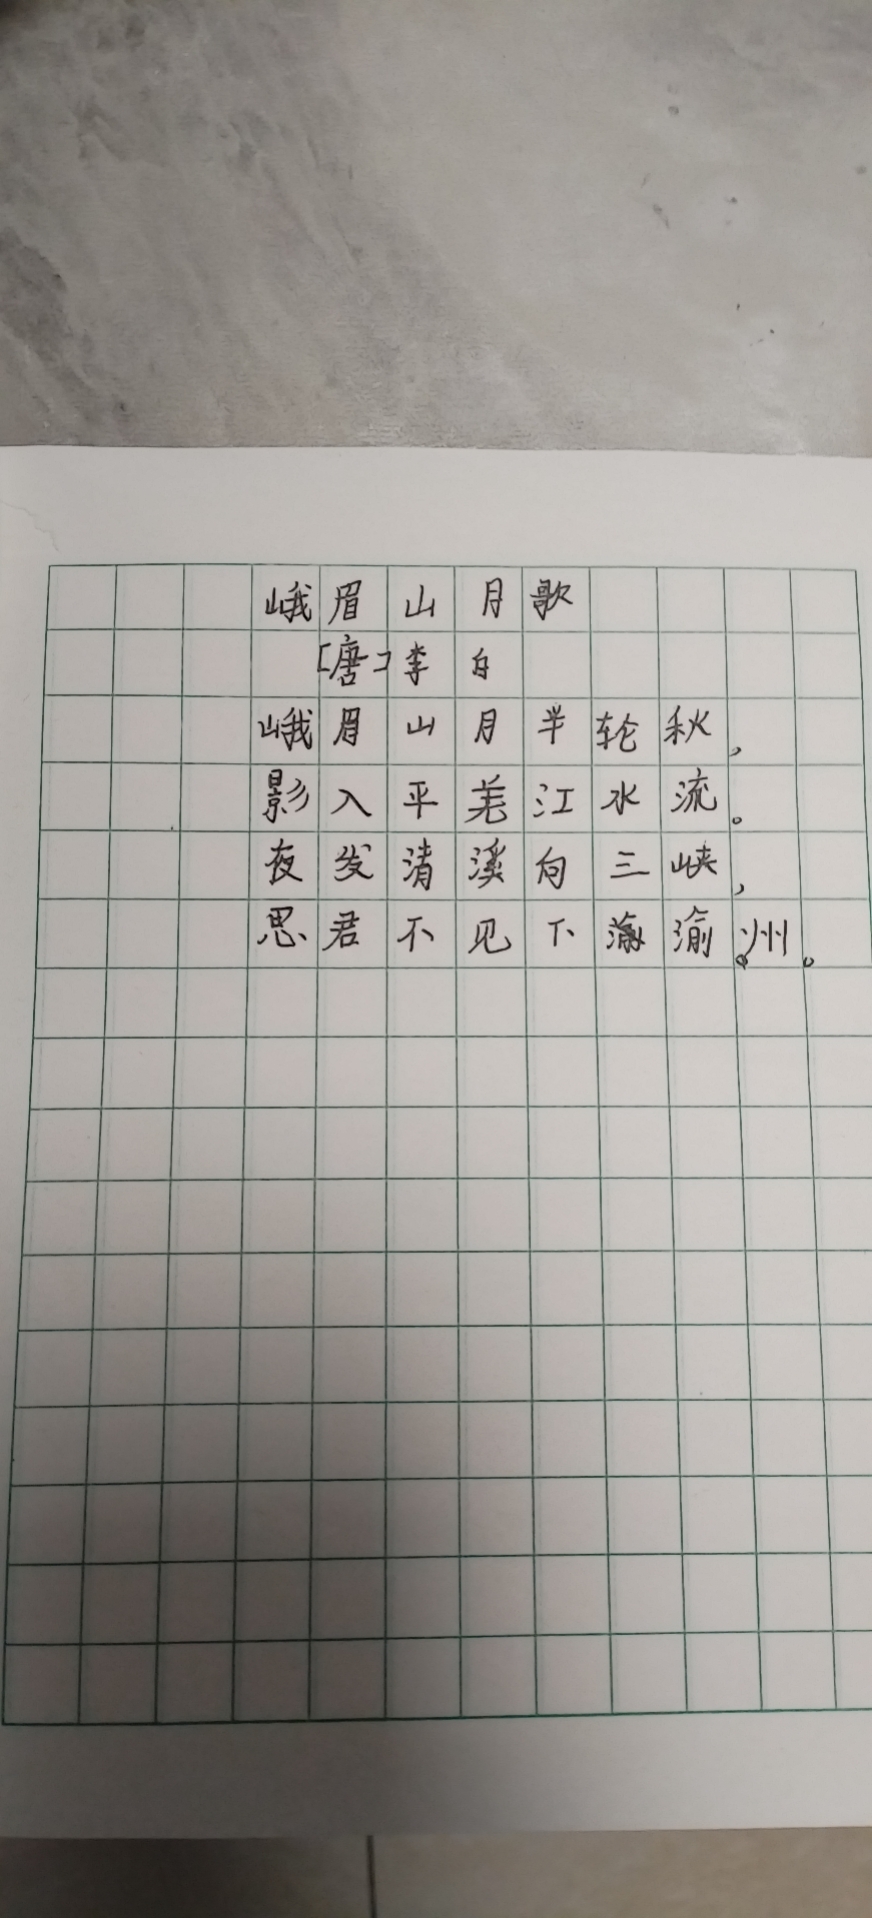 峨眉山月歌
[唐]李白
峨眉山月半轮秋，
影入平羌江水流。
夜发清溪向三峡，
思君不见下渝州。